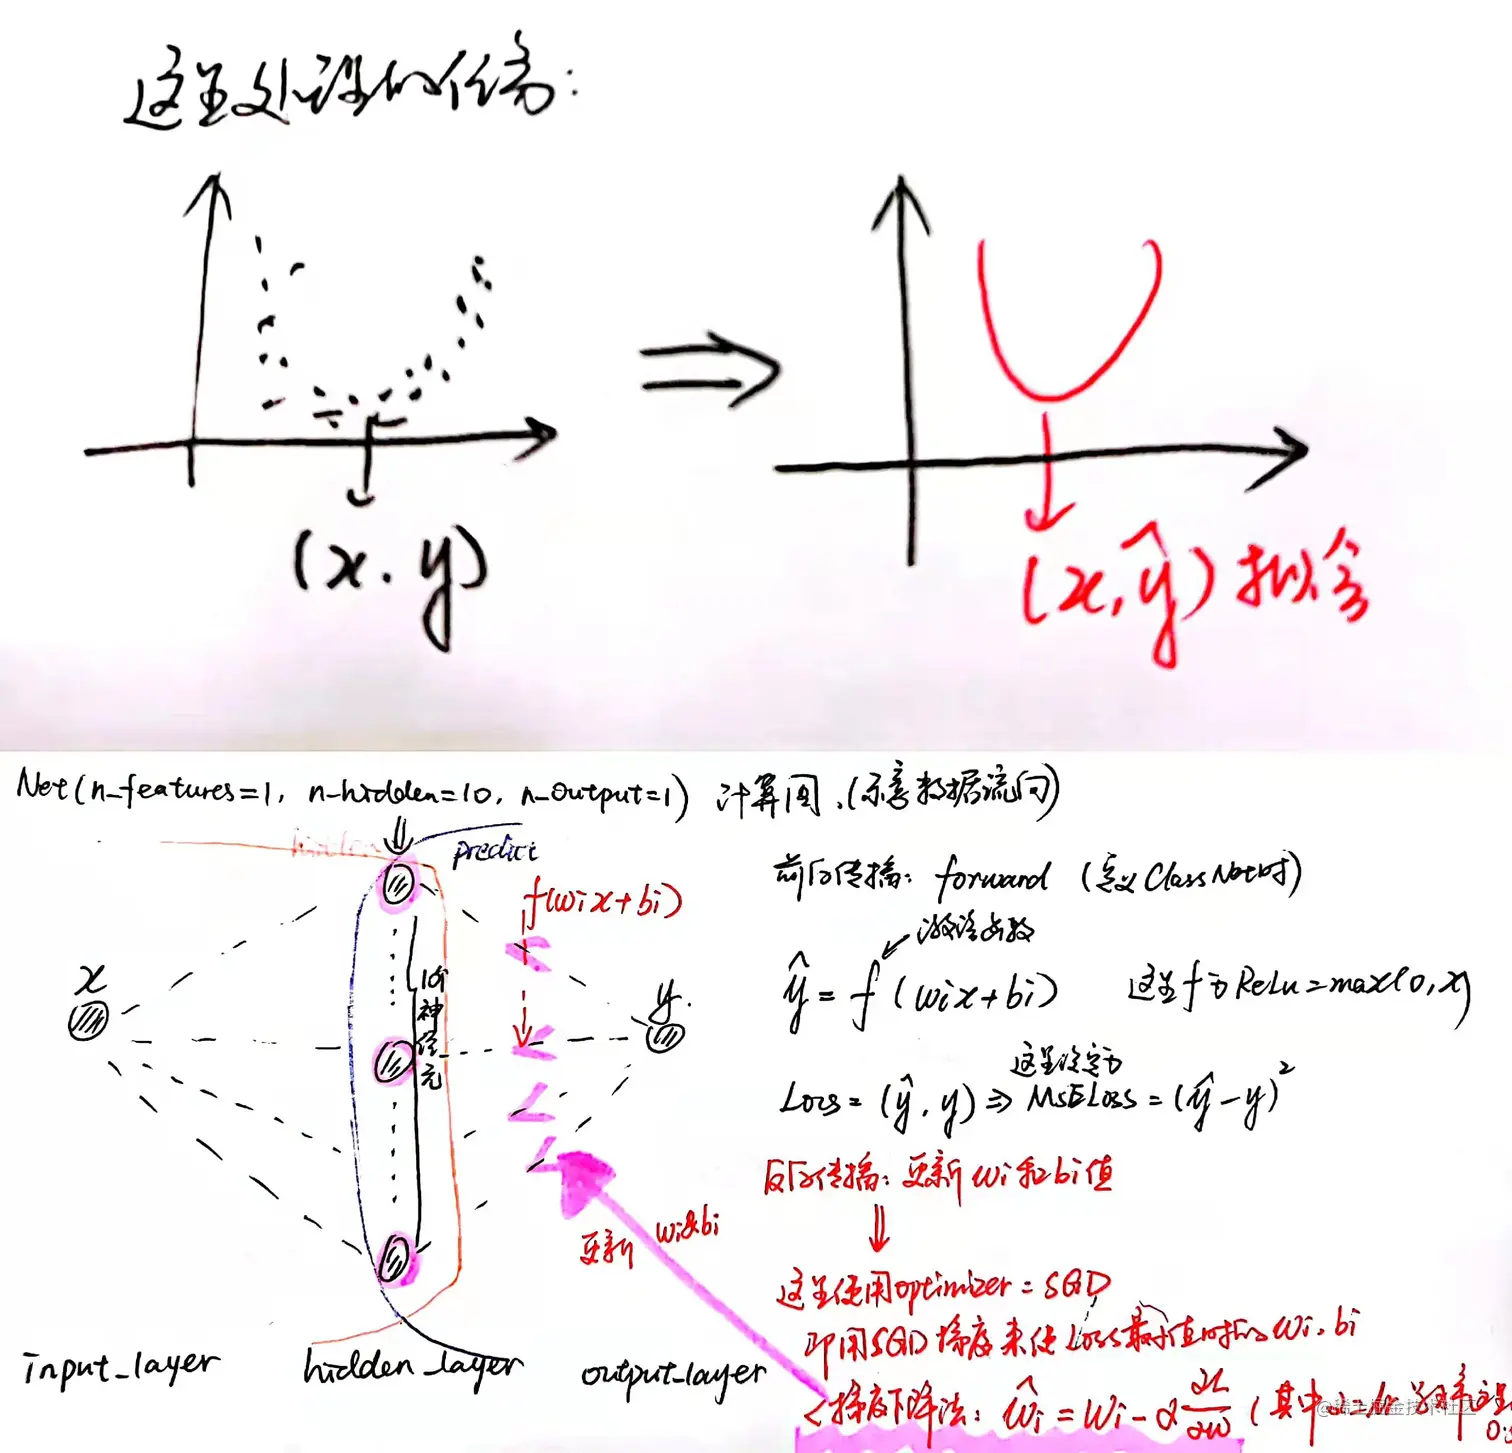 这里处理的任务:
(x.y)
(x,ŷ)拟合
Net(n_features=1, n_hidden=10, n_output=1) 计算图.(示意数据流向)
hidden
predict
f(wix+bi)
x
10个神经元
y.
更新 wi&bi
input_layer
hidden_layer
output_layer
前向传播: forward (定义Class Net时)
激活函数
ŷ=f(wix+bi) 这里f为ReLu=max(0,x)
这里设定为
Loss=(ŷ,y)⇒MSELoss=(ŷ-y)²
反向传播:更新wi和bi值
这里使用optimizer=SGD
即用SGD梯度来使Loss最小值时的wi.bi
<梯度下降法: ŵi=wi-α∂L/∂w (其中
@稀土掘金技术社区